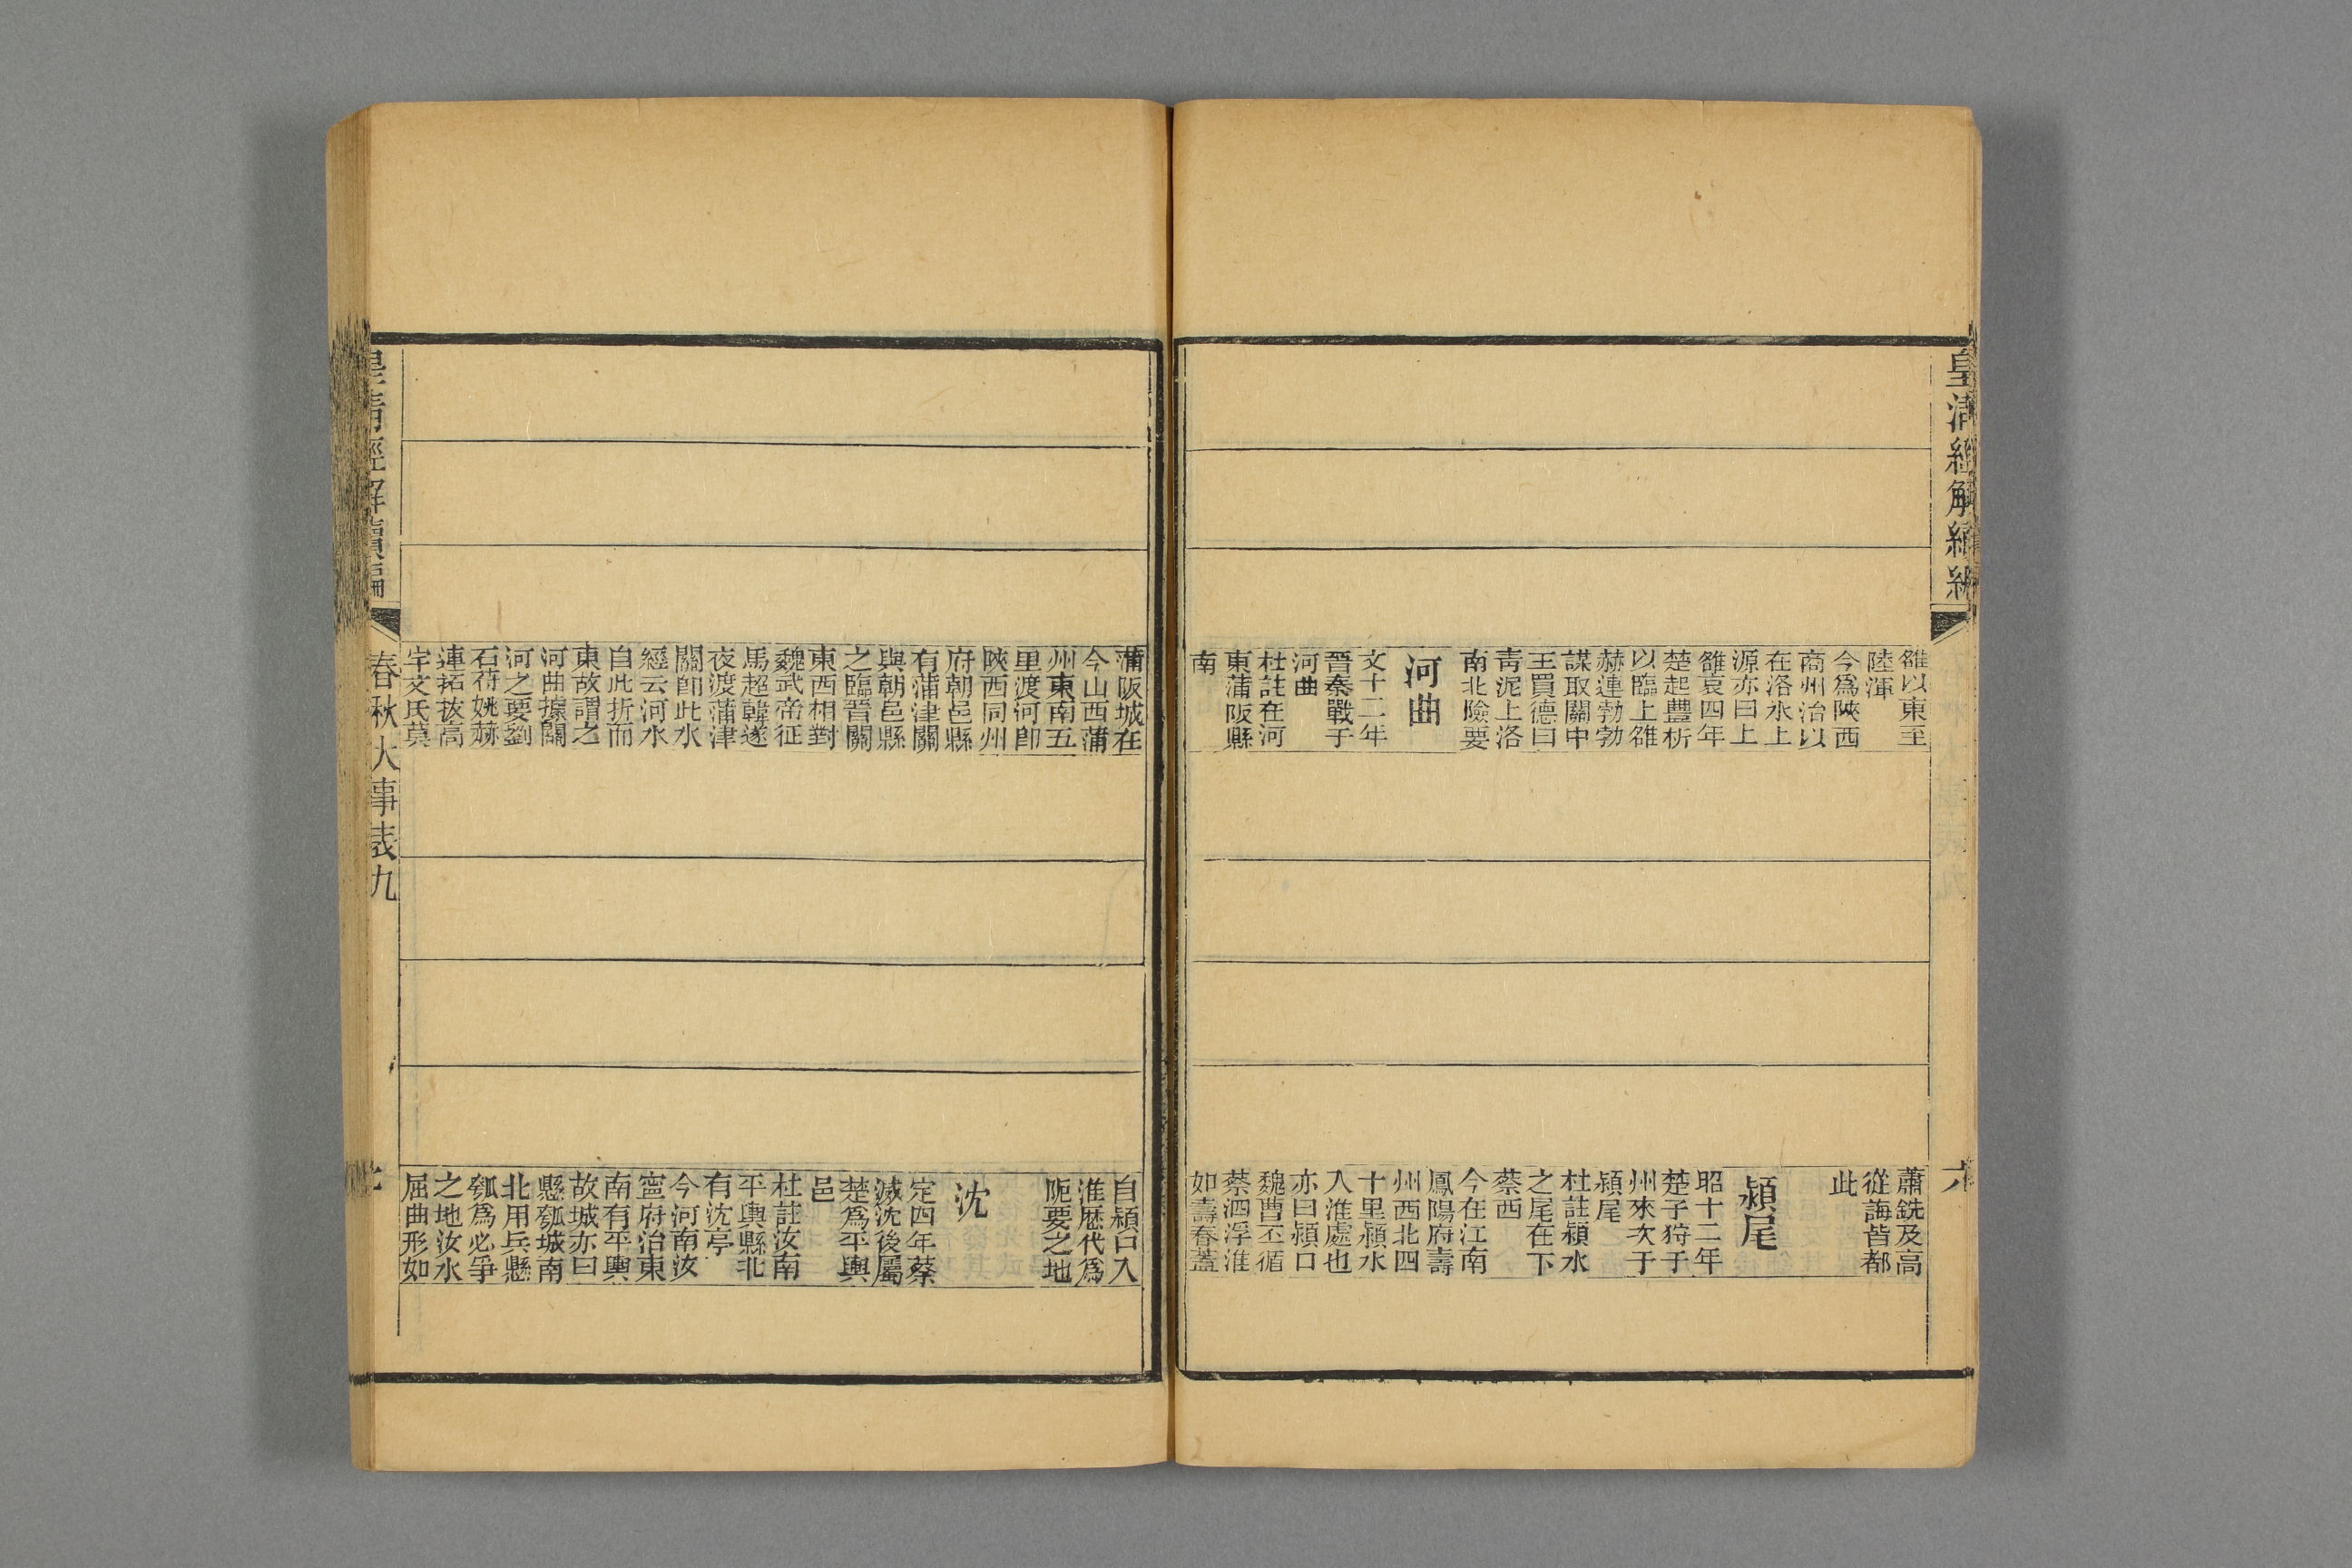 皇清經解續編
雒以東至
陸渾
今爲陝西
商州治以
在洛水上
源亦曰上
雒哀四年
楚起豐析
以臨上雒
赫連勃勃
謀取關中
王買德曰
青泥上洛
南北險要
河曲
文十二年
晉秦戰于
河曲
杜註在河
東蒲阪縣
南
蕭銑及高
從誨皆都
此
潁尾
昭十二年
楚子狩于
州來次于
潁尾
杜註潁水
之尾在下
蔡西
今在江南
鳳陽府壽
州西北四
十里潁水
入淮處也
亦曰潁口
魏曹丕循
蔡泗浮淮
如壽春蓋
蒲阪城在
今山西蒲
州東南五
里渡河卽
陝西同州
府朝邑縣
有蒲津關
與朝邑縣
之臨晉關
東西相對
魏武帝征
馬超韓遂
夜渡蒲津
關卽此水
經云河水
自此折而
東故謂之
河曲據關
河之要劉
石苻姚赫
連拓拔高
宇文氏莫
自潁口入
淮歷代爲
阨要之地
沈
定四年蔡
滅沈後屬
楚爲平輿
邑
杜註汝南
平輿縣北
有沈亭
今河南汝
寧府治東
南有平輿
故城亦曰
懸瓠城南
北用兵懸
瓠爲必爭
之地汝水
屈曲形如
皇清經解續編
春秋大事表九